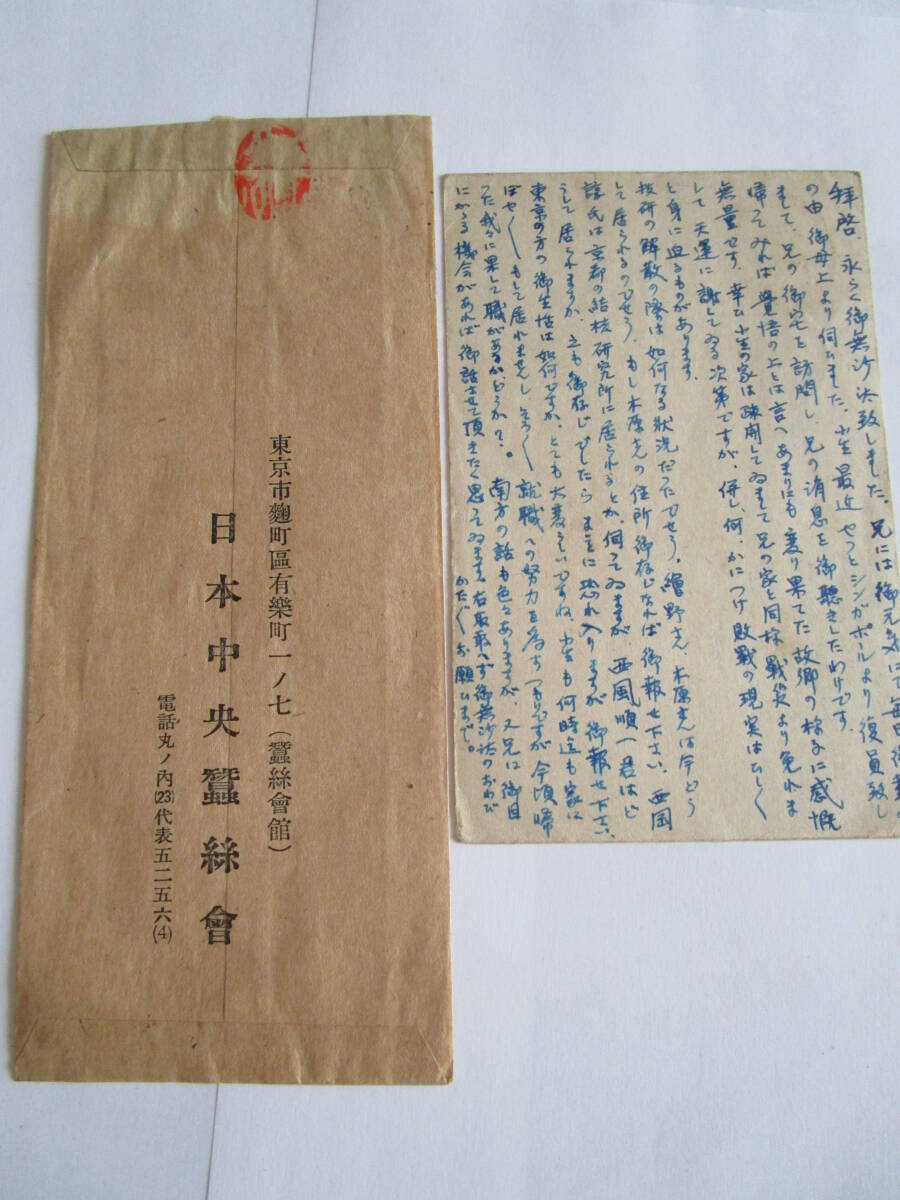 東京市麴町區有樂町一ノ七（蠶絲會館）
日本中央蠶絲會
電話丸ノ內(23)代表五二五六(4)
拜啓、永らく御無沙汰致しました。兄には御元気にて毎日御
の由 御母上より伺ひました。小生最近やつとシンガポールより復員致し
まして、兄の御宅を訪問し、兄の消息を御聴きしたわけです。
帰つてみれば覺悟の上とは言へあまりにも変り果てた故郷の様子に感慨
無量です。幸ひ小生の家は疎開してゐまして兄の家と同様戰災より免れま
して天運に謝してゐる次第ですが、併し、何かにつけ敗戰の現実はひしく
と身に迫るものがあります。
技研の解散の際は如何なる状況だつたでせう。野さん、木原さんは今どう
して居られるのでせう。もし木原さんの住所御存じなれば御報せ下さい。西岡
諒氏は京都の結核研究所に居られるとか、伺つてゐますが 西風順一君はど
うして居られますか、之も御存じでしたら まことに恐れ入りますが御報せ下さい。
東京の方の御生活は如何ですか、とても大変らしいですね、小生も何時迄も家に
ばや〱もして居れませんし そろ〱就職への努力を為すつもりですが 今頃帰
つた我々に果して職があるかどうか？。南方の話も色々ありますが、又兄に御目
にかゝる機会があれば御話させて頂きたく思つてゐます。右取敢へず御無沙汰のおわび
かた〲お願ひまで。